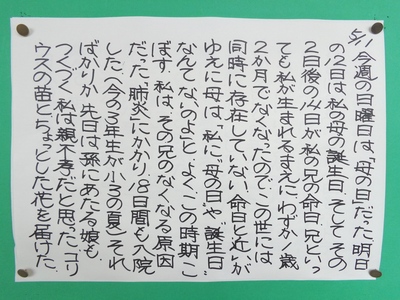 5/11 今週の日曜日は「母の日」だった。明日
の12日は、私の母の誕生日、そして、その
2日後の14日が私の兄の命日。兄といっ
ても私が生まれるまえに、わずか1歳
2か月でなくなったので、この世には
同時に存在していない。命日と近いが
ゆえに母は、「私に『母の日』や『誕生日』
なんてないのよ」と、よくこの時期、こ
ぼす。私は、その兄のなくなる原因
だった「肺炎」にかかり、18日間も入院
した(今の3年生が小3の夏)。それ
ばかりか、先日は、孫にあたる娘も。
つくづく、私は「親不孝」だと思った。ユリ
ウスの苗と、ちょっとした花を届けた。